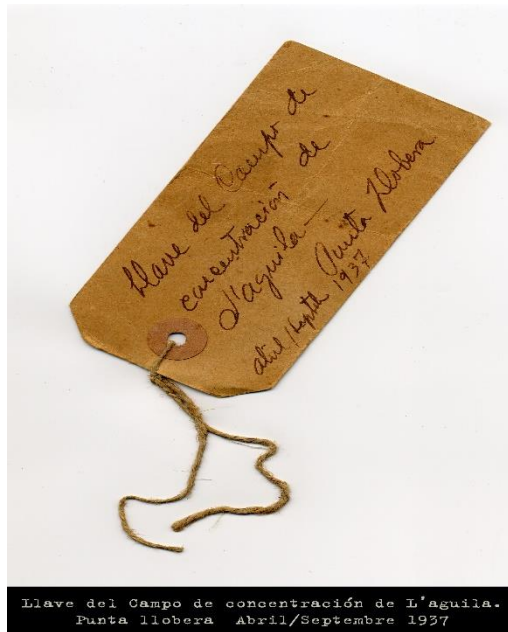 Llave del Campo de
concentración de
L'aguila —
Punta Llobera
abril/Septbe 1937
Llave del Campo de concentración de L'aguila.
Punta llobera Abril/Septembre 1937